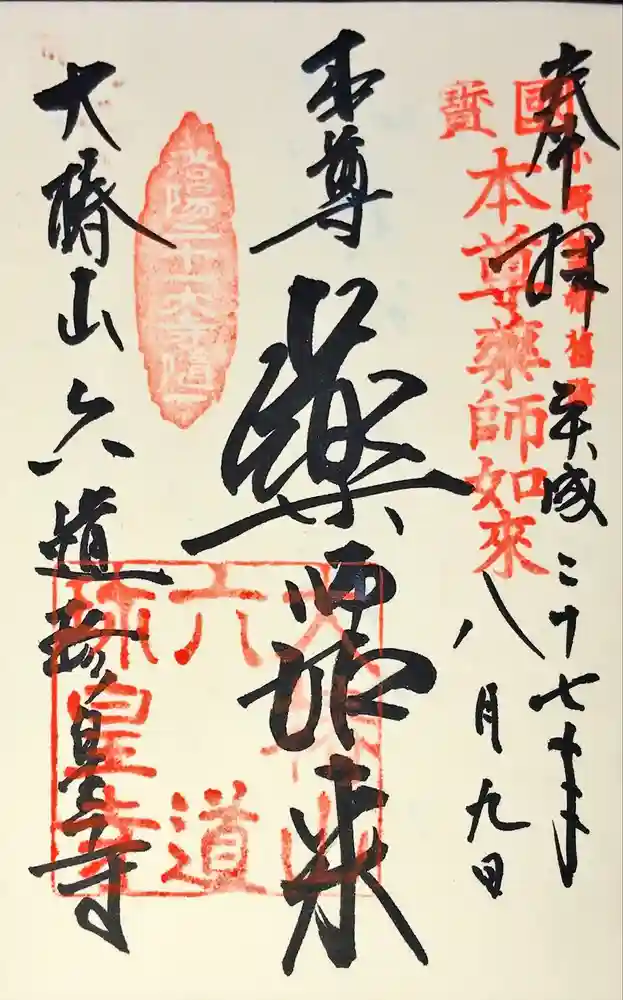 奉拝
平成二十七年
八月九日
國寳
本尊薬師如來
本尊
薬師如来
大椿山
六道珍皇寺
大椿山
六道
珎皇寺